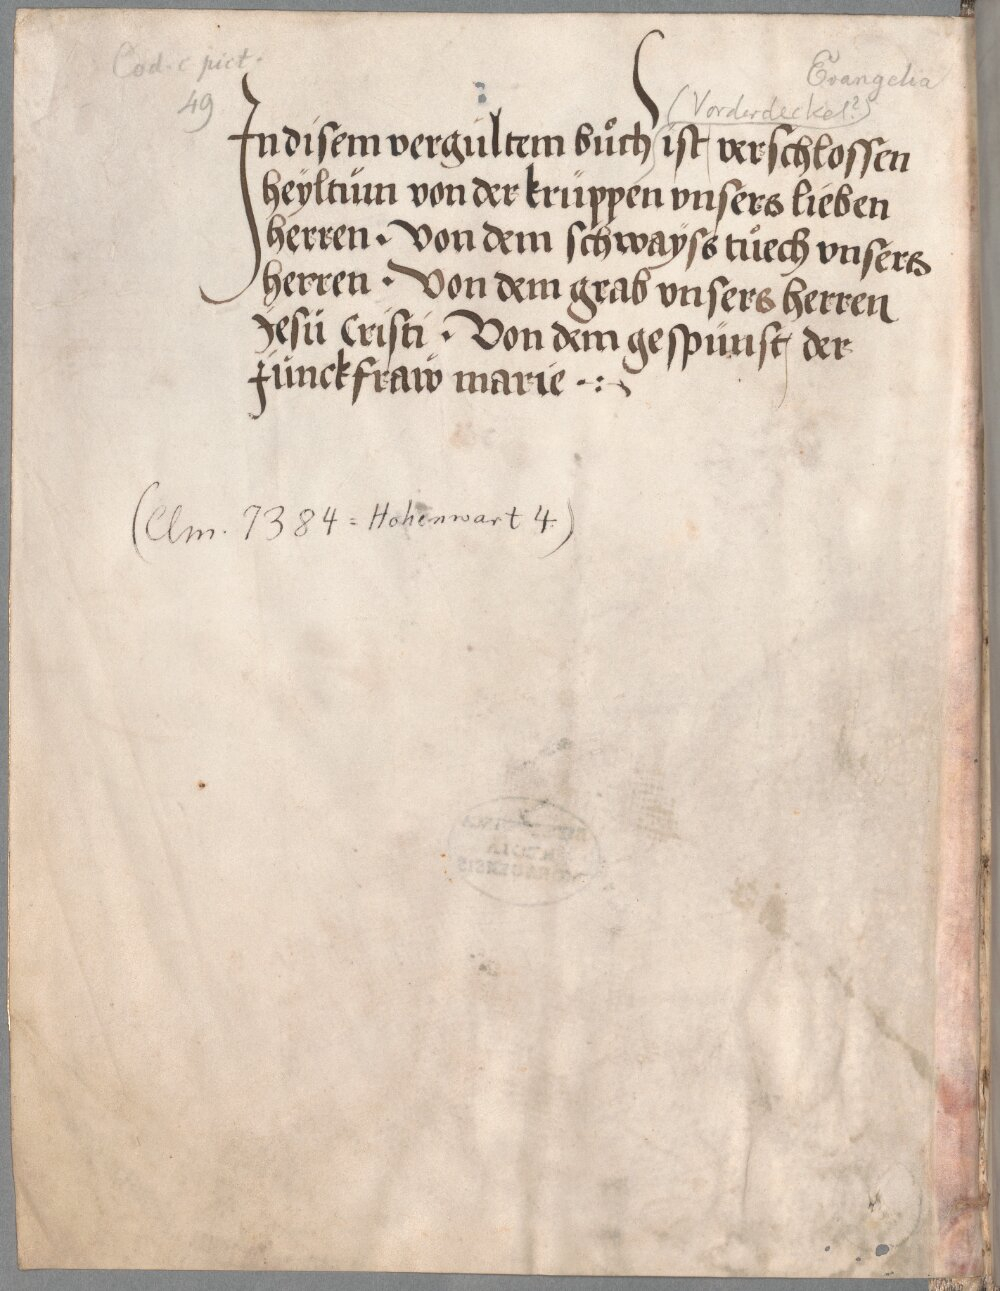 Cod. c pict.
49
Evangelia
(Vorderdeckel?)
In disem vergültem bůch ist verschlossen
heyltüm von der krüppen vnsers lieben
herren · Von dem schwayss tůech vnsers
herren · Von dem grab vnsers herren
Jesü Cristi · Von dem gespünst der
Jünckfraw marie ·:~
(Clm. 7384 = Hohenwart 4)